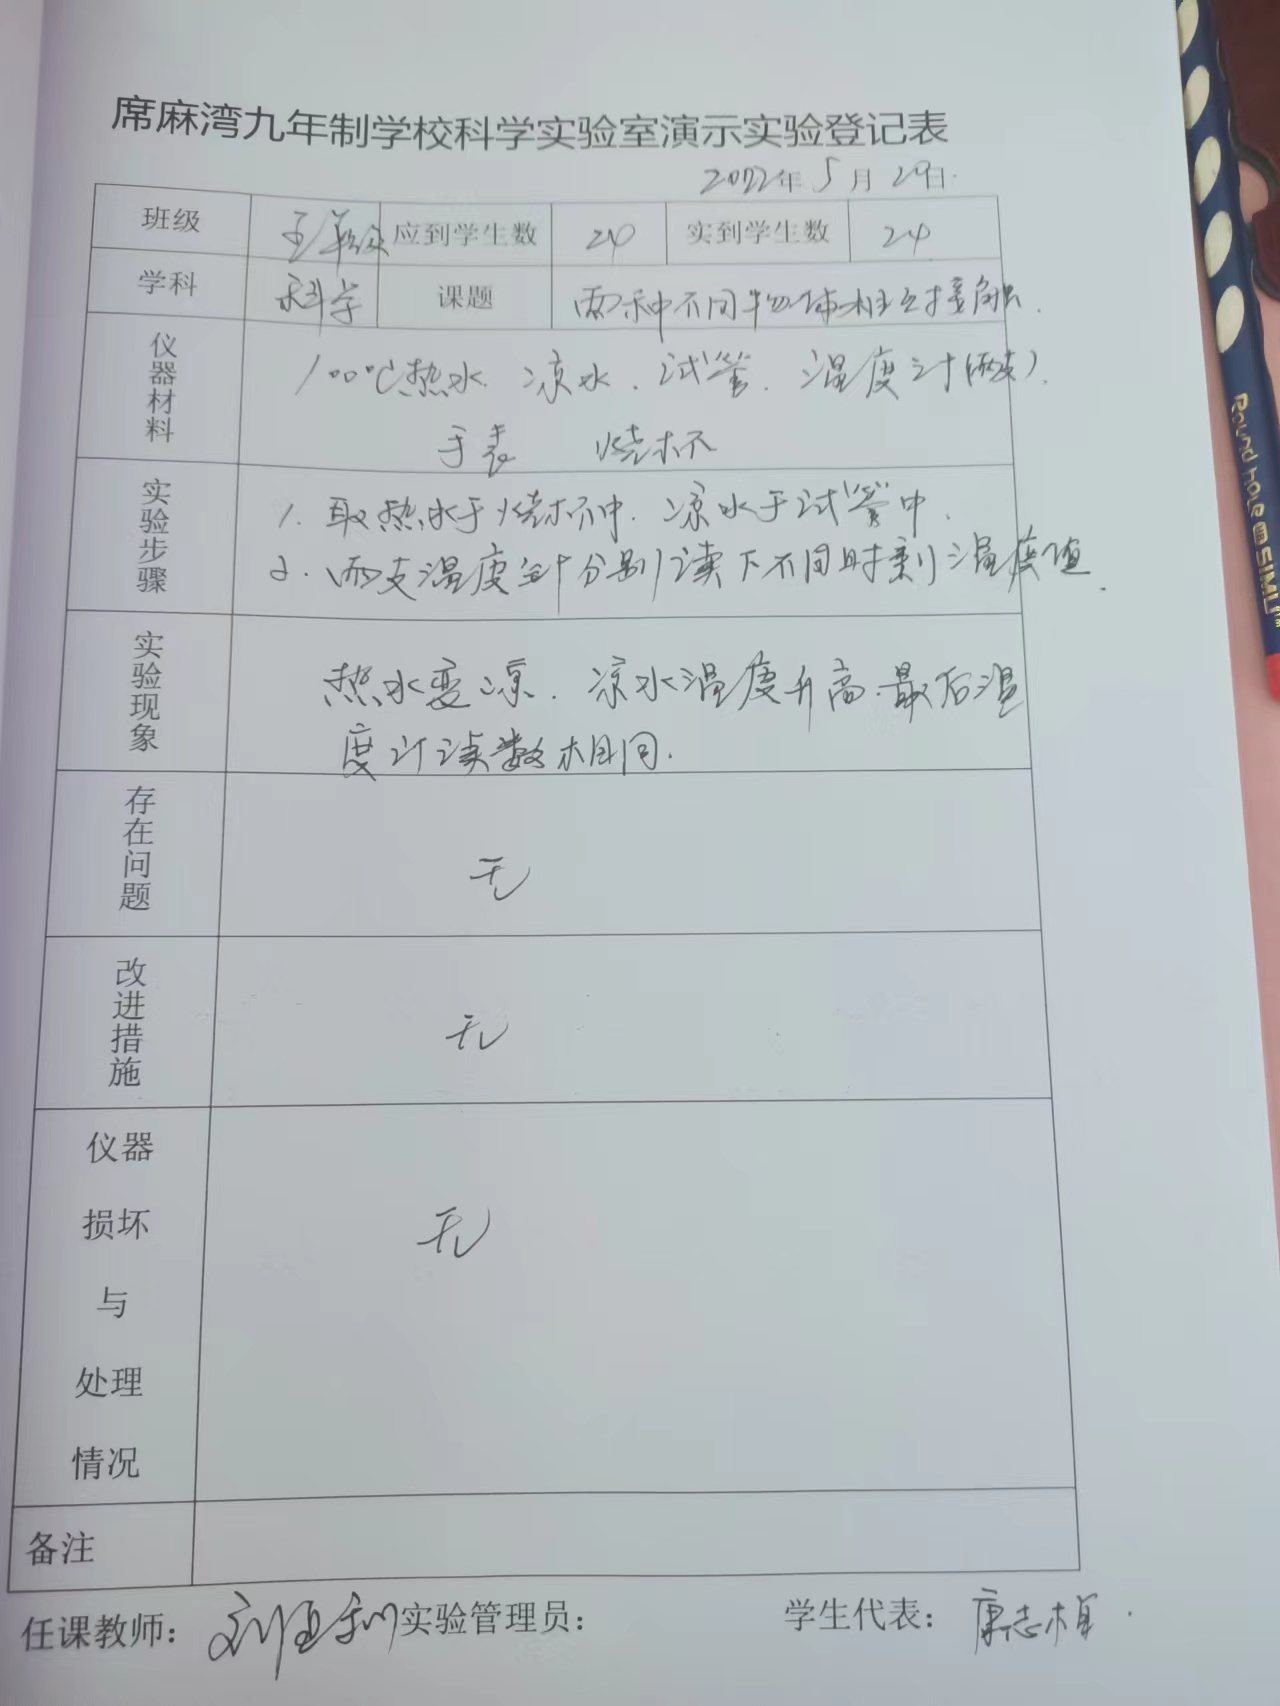 席麻湾九年制学校科学实验室演示实验登记表
2022年 5月 29日
班级 五年级 应到学生数 24 实到学生数 24
学科 科学 课题 两种不同物体相互接触.
仪器材料 100℃热水. 凉水. 试管. 温度计(两支).
手表 烧杯
实验步骤 1. 取热水于烧杯中. 凉水于试管中.
2. 两支温度计分别读下不同时刻温度值.
实验现象 热水变凉. 凉水温度升高. 最后温
度计读数相同.
存在问题 无
改进措施 无
仪器
损坏 无
与
处理
情况
备注
任课教师: 实验管理员: 学生代表: 康志
Round hole SIMU